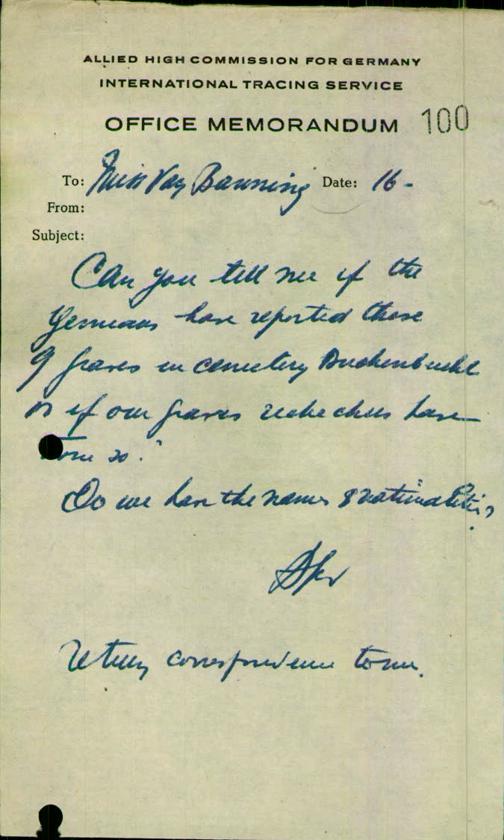 ALLIED HIGH COMMISSION FOR GERMANY
INTERNATIONAL TRACING SERVICE
OFFICE MEMORANDUM 100
To: Miss Banning Date: 16 -
From:
Subject:
Can you tell me if the
Germans have reported these
9 graves in cemetery
or if our graves have
so."
Do we have the names & nationalities?
correspondence to me.